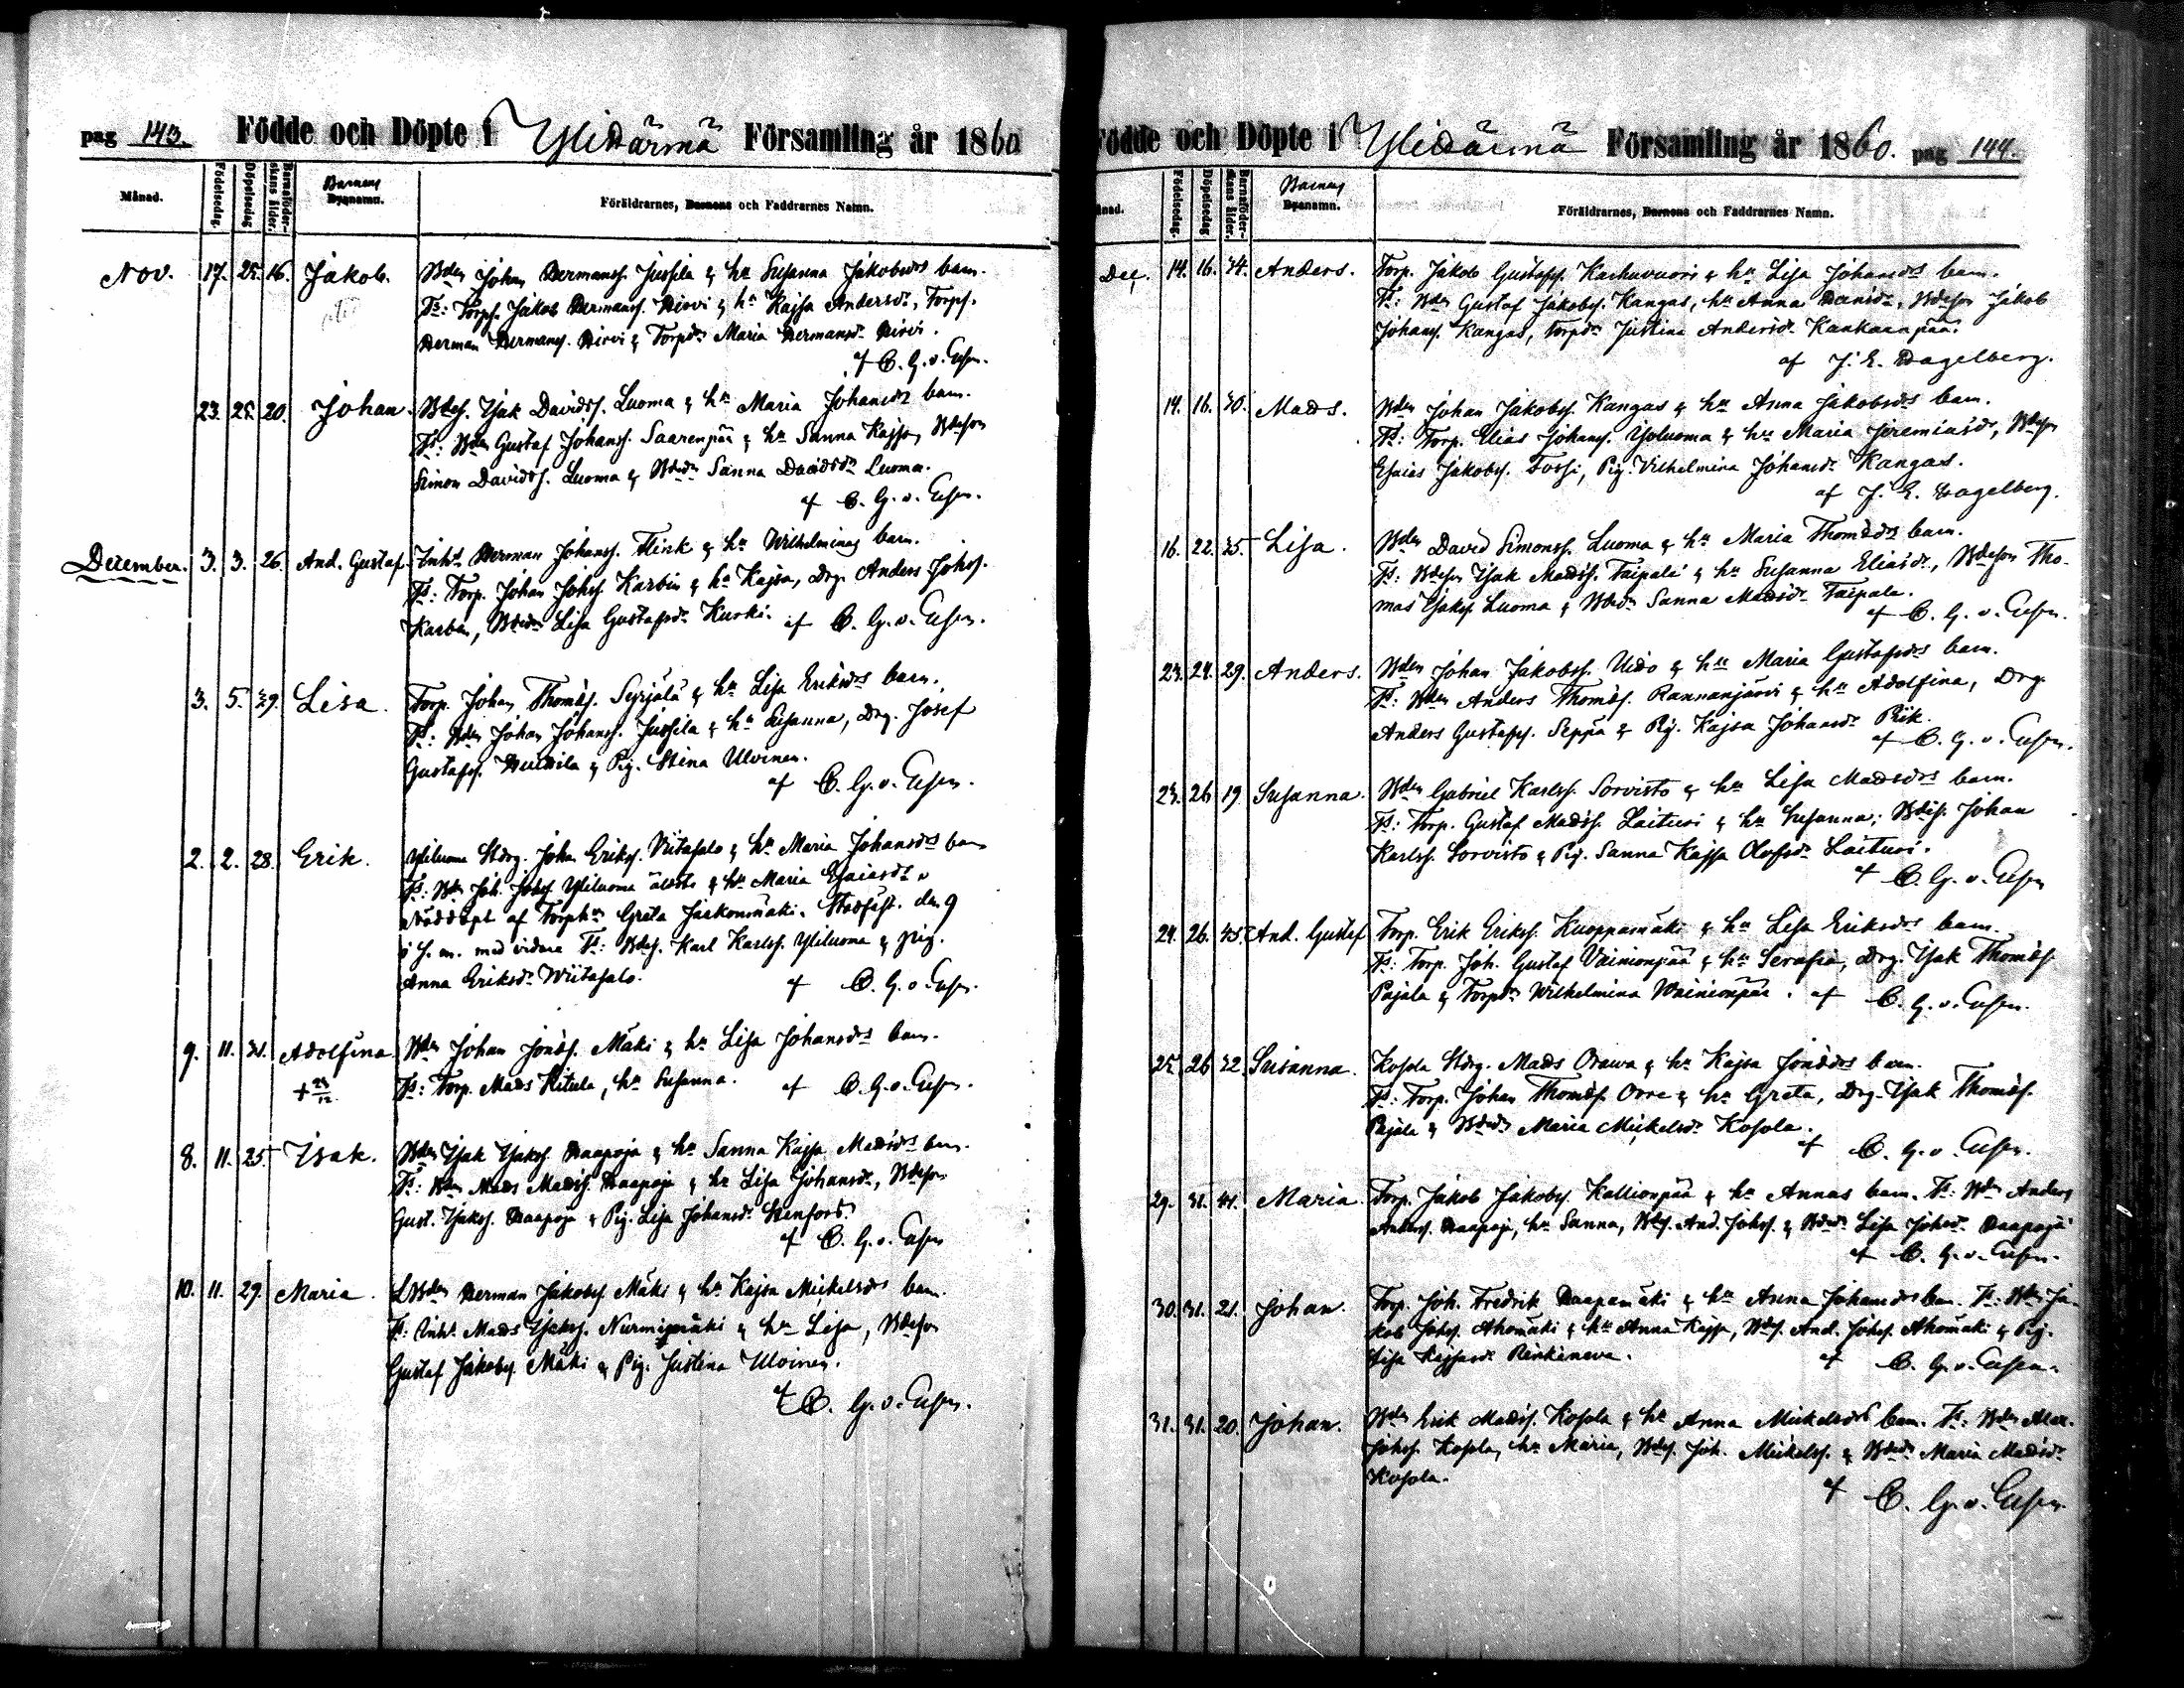 pag 143. Födde och Döpte i Ylihärmä Församling år 1860
Månad. Födelsedag. Döpelsedag Barnaföderskans ålder. Barnens Dopnamn. Föräldrarnes, Barnens och Faddrarnes Namn.
Nov. 17. 25. 16. Jakob. Bden Johan Hermanss. Jussila & hu Susanna Jakobsdrs barn.
Ts: Torps. Jakob Hermanss. Hirvi & hu Kajsa Andersdr, Torps.
Herman Hermanss. Hirvi & Torpdr Maria Hermansdr Hirvi.
af C. G. v. Essen.
23. 25. 20. Johan. Bdes. Isak Davidss. Luoma & hu Maria Johansdrs barn.
Ts: Bden Gustaf Johanss. Saarenpää & hu Sanna Kajsa, Bdeson
Simon Davidss. Luoma & Bdedr Sanna Davidsdr Luoma.
af C. G. v. Essen.
December. 3. 3. 26. And. Gustaf Inhs Herman Johanss. Flink & hu Wilhelminas barn.
Ts: Torp. Johan Johss. Karbin & hu Kajsa, Drg. Anders Johss.
Karbin, Bdedr Lisa Gustafsdr Kurki. af C. G. v. Essen.
3. 5. 29. Lisa. Torp. Johan Thomass. Syrjälä & hu Lisa Eriksdrs barn.
Ts: Bden Johan Johanss. Jussila & hu Susanna, Drg. Josef
Gustafss. & Pig. Stina Ulvinen.
af C. G. v. Essen.
2. 2. 28. Erik. Yliluoma Stdrg. Johan Erikss. Viitasalo & hu Maria Johansdrs barn
Ts: Bden Joh. Johss. Yliluoma äldste & hu Maria Esaiasdr
Nöddöpt af Torphu Greta Jaakonmäki. Stadfäst. den 9
i s. m. med vidare Ts: Bdes. Karl Karlss. Yliluoma & pig.
Anna Eriksdr Wiitasalo. af C. G. v. Essen.
9. 11. 31. Adolfina Bden Johan Jonass. Mäki & hu Lisa Johansdrs barn.
+ 24/12. Ts: Torp. Mads Kitula, hu Susanna. af C. G. v. Essen.
8. 11. 25. Isak. Bden Isak Isakss. Haapoja & hu Sanna Kajsa Madsdrs barn.
Ts: Bden Mads Madss. Haapoja & hu Lisa Johansdr, Bdeson
Gust. Isakss. Haapoja & Pig. Lisa Johansdr Stenfors.
af C. G. v. Essen
10. 11. 29. Maria. Bden Herman Jakobss. Mäki & hu Kajsa Mickelsdrs barn.
Ts: Inhs. Mads Isakss. Nurmimäki & hu Lisa, Bdeson
Gustaf Jakobss. Mäki & Pig. Justina Ulvinen.
af C. G. v. Essen.
Födde och Döpte i Ylihärmä Församling år 1860. pag 144.
Månad. Födelsedag. Döpelsedag Barnaföderskans ålder. Barnens Dopnamn. Föräldrarnes, Barnens och Faddrarnes Namn.
Dec. 14. 16. 34. Anders. Torp. Jakob Gustafss. Karhuvuori & hu Lisa Johansdrs barn.
Ts: Bden Gustaf Jakobss. Kangas, hu Anna, Bdeson Jakob
Johanss. Kangas, Torpdr Justina Andersdr Kankaanpää.
af J. E. Hagelberg.
14. 16. 30. Mads. Bden Johan Jakobss. Kangas & hu Anna Jakobsdrs barn.
Ts: Torp. Elias Johanss. Yliluoma & hu Maria Jeremiasdr, Bdeson
Esaias Jakobss. Tossi, Pig. Vilhelmina Johansdr Kangas.
af J. E. Hagelberg.
16. 22. 35. Lisa. Bden David Simonss. Luoma & hu Maria Thomasdrs barn.
Ts: Bdeson Isak Madss. Taipale & hu Susanna Eliasdr, Bdeson Tho-
mas Isakss Luoma & Bdedr Sanna Madsdr Taipale.
af C. G. v. Essen.
23. 24. 29. Anders. Bden Johan Jakobss. Uido & hu Maria Gustafsdrs barn.
Ts: Bden Anders Thomass. Rannanjärvi & hu Adolfina, Drg.
Anders Gustafss. Seppä & Pig. Kajsa Johansdr Piik.
af C. G. v. Essen.
23. 26 19 Susanna. Bden Gabriel Karlss. Sorvisto & hu Lisa Madsdrs barn.
Ts: Torp. Gustaf Madss. Laituri & hu Susanna; Bdes. Johan
Karlss. Sorvisto & Pig. Sanna Kajsa Olofsdr Laituri.
af C. G. v. Essen
24. 26. 45. And. Gustaf Torp. Erik Erikss. Kuoppamäki & hu Lisa Eriksdrs barn.
Ts: Torp. Joh. Gustaf Vainionpää & hu Serafia, Drg. Isak Thomass
Pajala & Torpdr Wilhelmina Wainionpää. af C. G. v. Essen.
25. 26 32. Susanna. Kosola Stdrg. Mads Orawa & hu Kajsa Jonasdrs barn.
Ts: Torp. Johan Thomass. Orre & hu Greta, Drg. Isak Thomass.
Pajala & Bdedr Maria Mickelsdr Kosola.
af C. G. v. Essen.
29. 31. 41. Maria. Torp. Jakob Jakobss. Kallionpää & hu Annas barn. Ts: Bden Anders
Anderss. Haapoja, hu Sanna, Bdes. And. Johss. & Bdedr Lisa Johsdr Haapoja
af C. G. v. Essen.
30. 31. 21. Johan. Torp. Joh. Fredrik Haapamäki & hu Anna Johansdrs barn. Ts: Bden Ja-
kob Johss. Ahomäki & hu Anna Kajsa, Bdes. And. Johss. Ahomäki & Pig.
Lisa Kajsa Rinkineva. af C. G. v. Essen.
31. 31. 20. Johan. Bden Erik Madss. Kosola & hu Anna Mickelsdrs barn. Ts: Bden Alex.
Johss. Kosola, hu Maria, Bdes. Joh. Mickelss. & Bdedr Maria Madsdr
Kosola.
af C. G. v. Essen